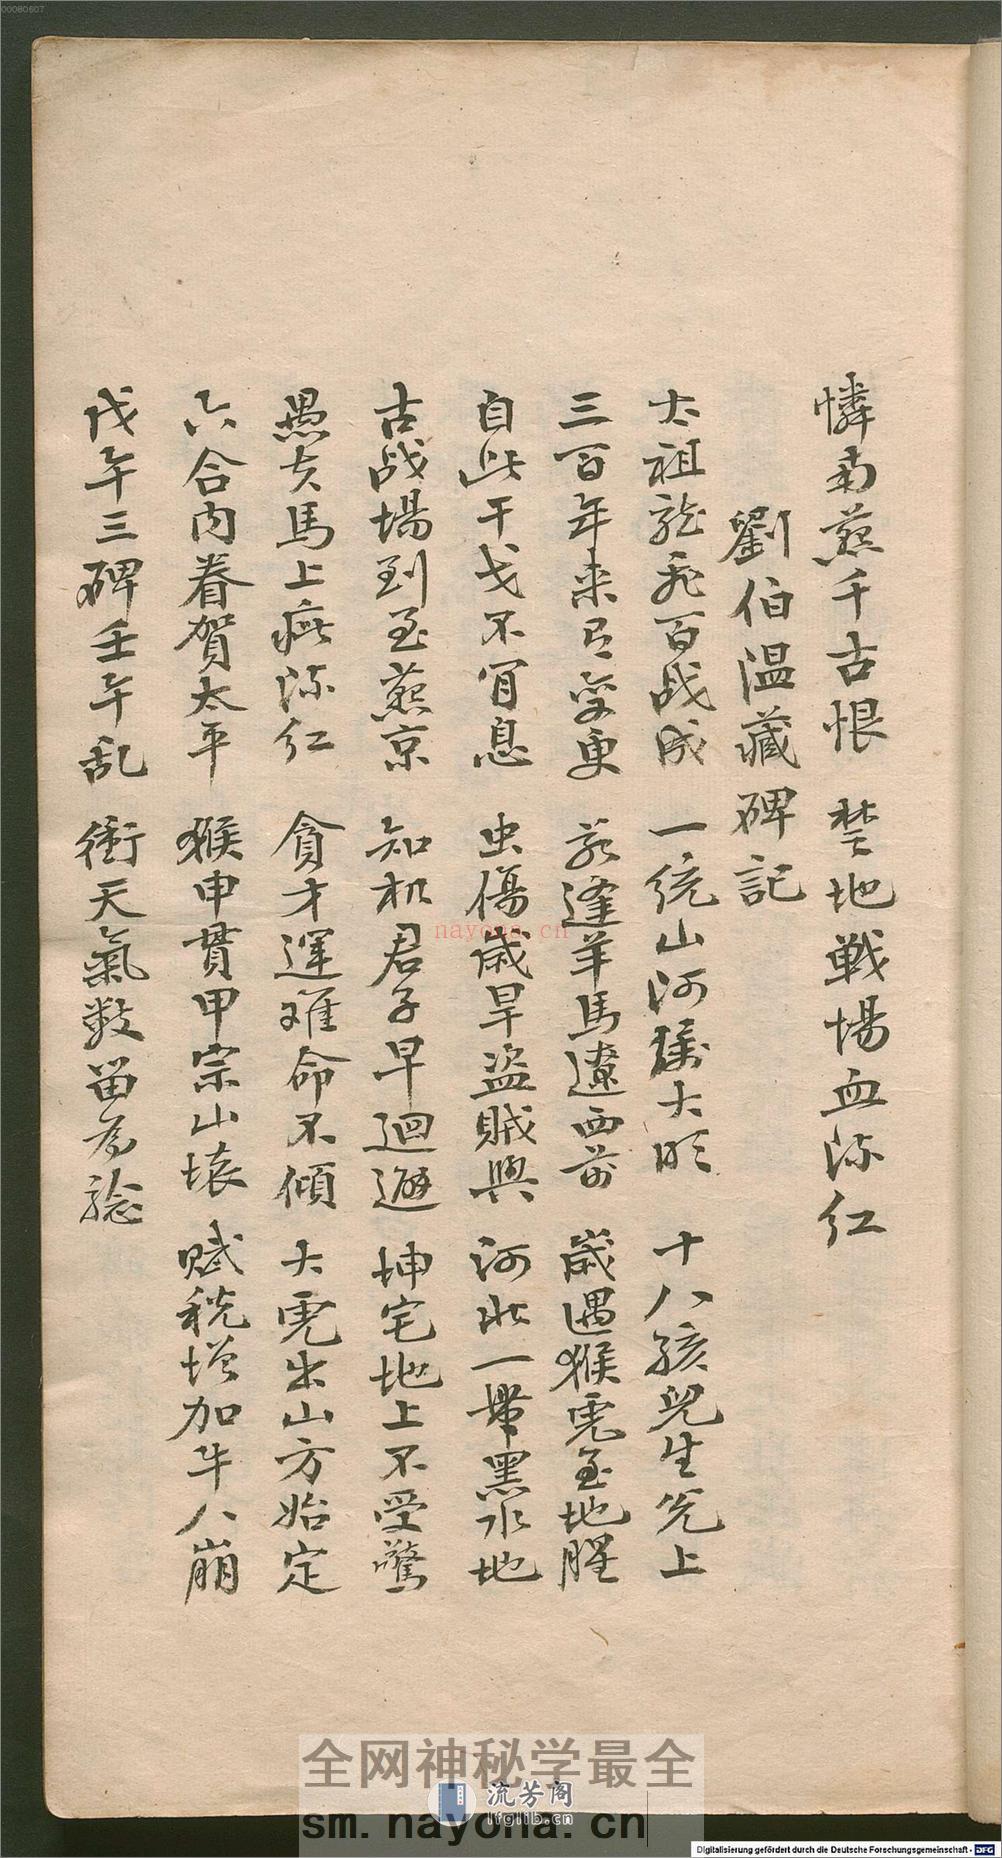 憐南燕千古恨 楚地戰場血流紅
劉伯温藏碑記
太祖龍飛百战成 一統山河屬大明 十八孩兒生兌上
三百年来見变更 若逢羊馬遼西 歲遇猴虎至地腥
自此干戈不寧息 虫傷歲旱盜賊興 河北一帶黑水地
古战場到至燕京 知机君子早迴避 坤宅地上不受驚
愚夫馬上疵流红 貪才運难命不傾 大虎出山方始定
六合内眷賀太平 猴申貫甲宗山壊 赋稅增加牛八崩
戊午三碑壬午乱 衝天氣数留為
00080607
nayona.cn
全网神秘学最全
流芳阁
lfglib.cn
sm.nayona.cn
Digitalisierung gefördert durch die Deutsche Forschungsgemeinschaft - DFG